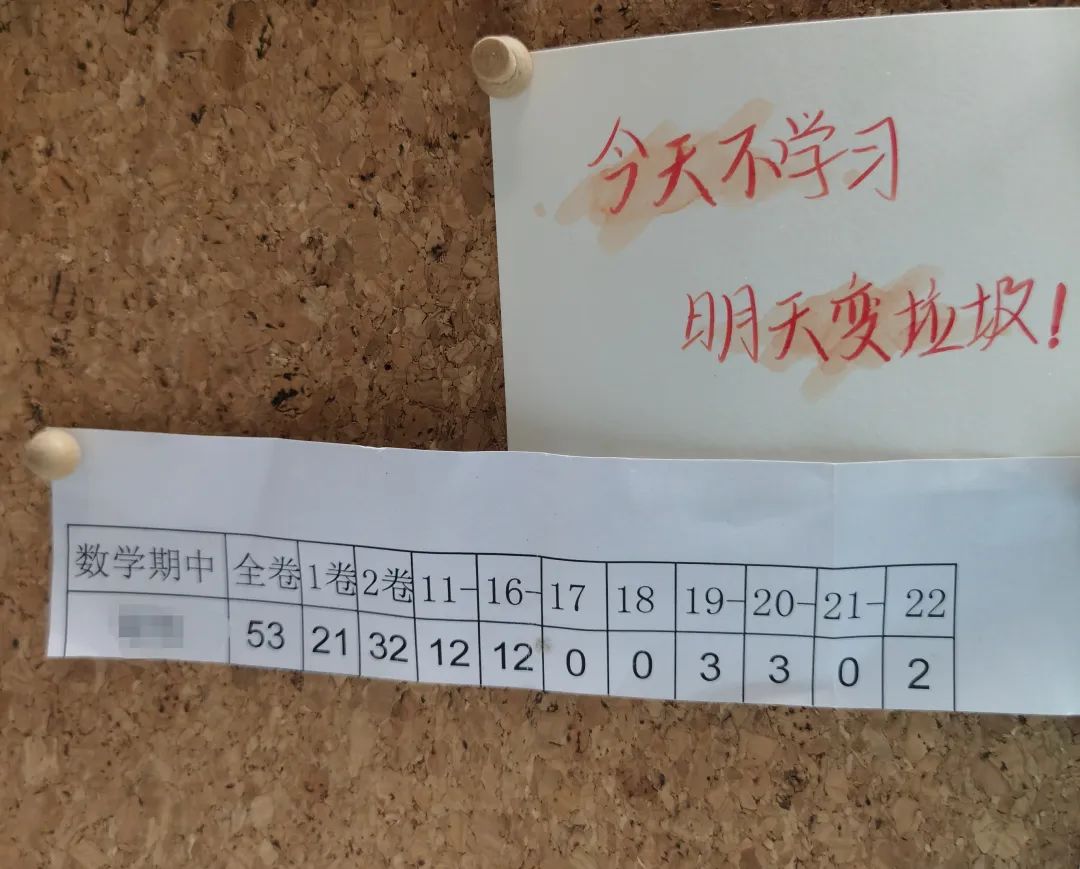 今天不学习
明天变垃圾!
数学期中 全卷 1卷 2卷 11- 16- 17 18 19- 20- 21- 22
53 21 32 12 12 0 0 3 3 0 2